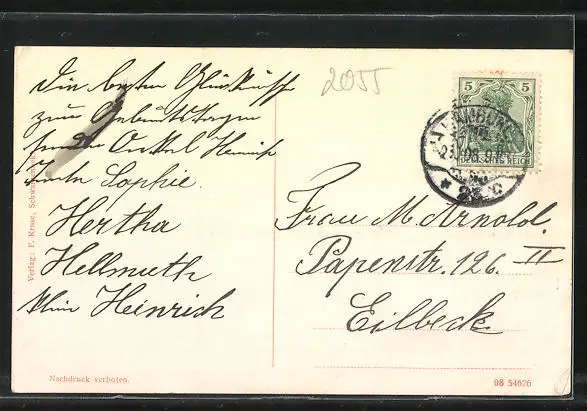 2055
Die besten Glückwünsche
zum Geburtstage
sendet Onkel Heinrich
Tante Sophie.
Hertha
Hellmuth
Klein Heinrich
Verlag: F. Kruse, Schwarzenbek
5 5
HAMBURG
DEUTSCHES REICH
* 22 c
Frau M. Arnold.
Papenstr. 126. II
Eilbeck
Nachdruck verboten.
08 54626